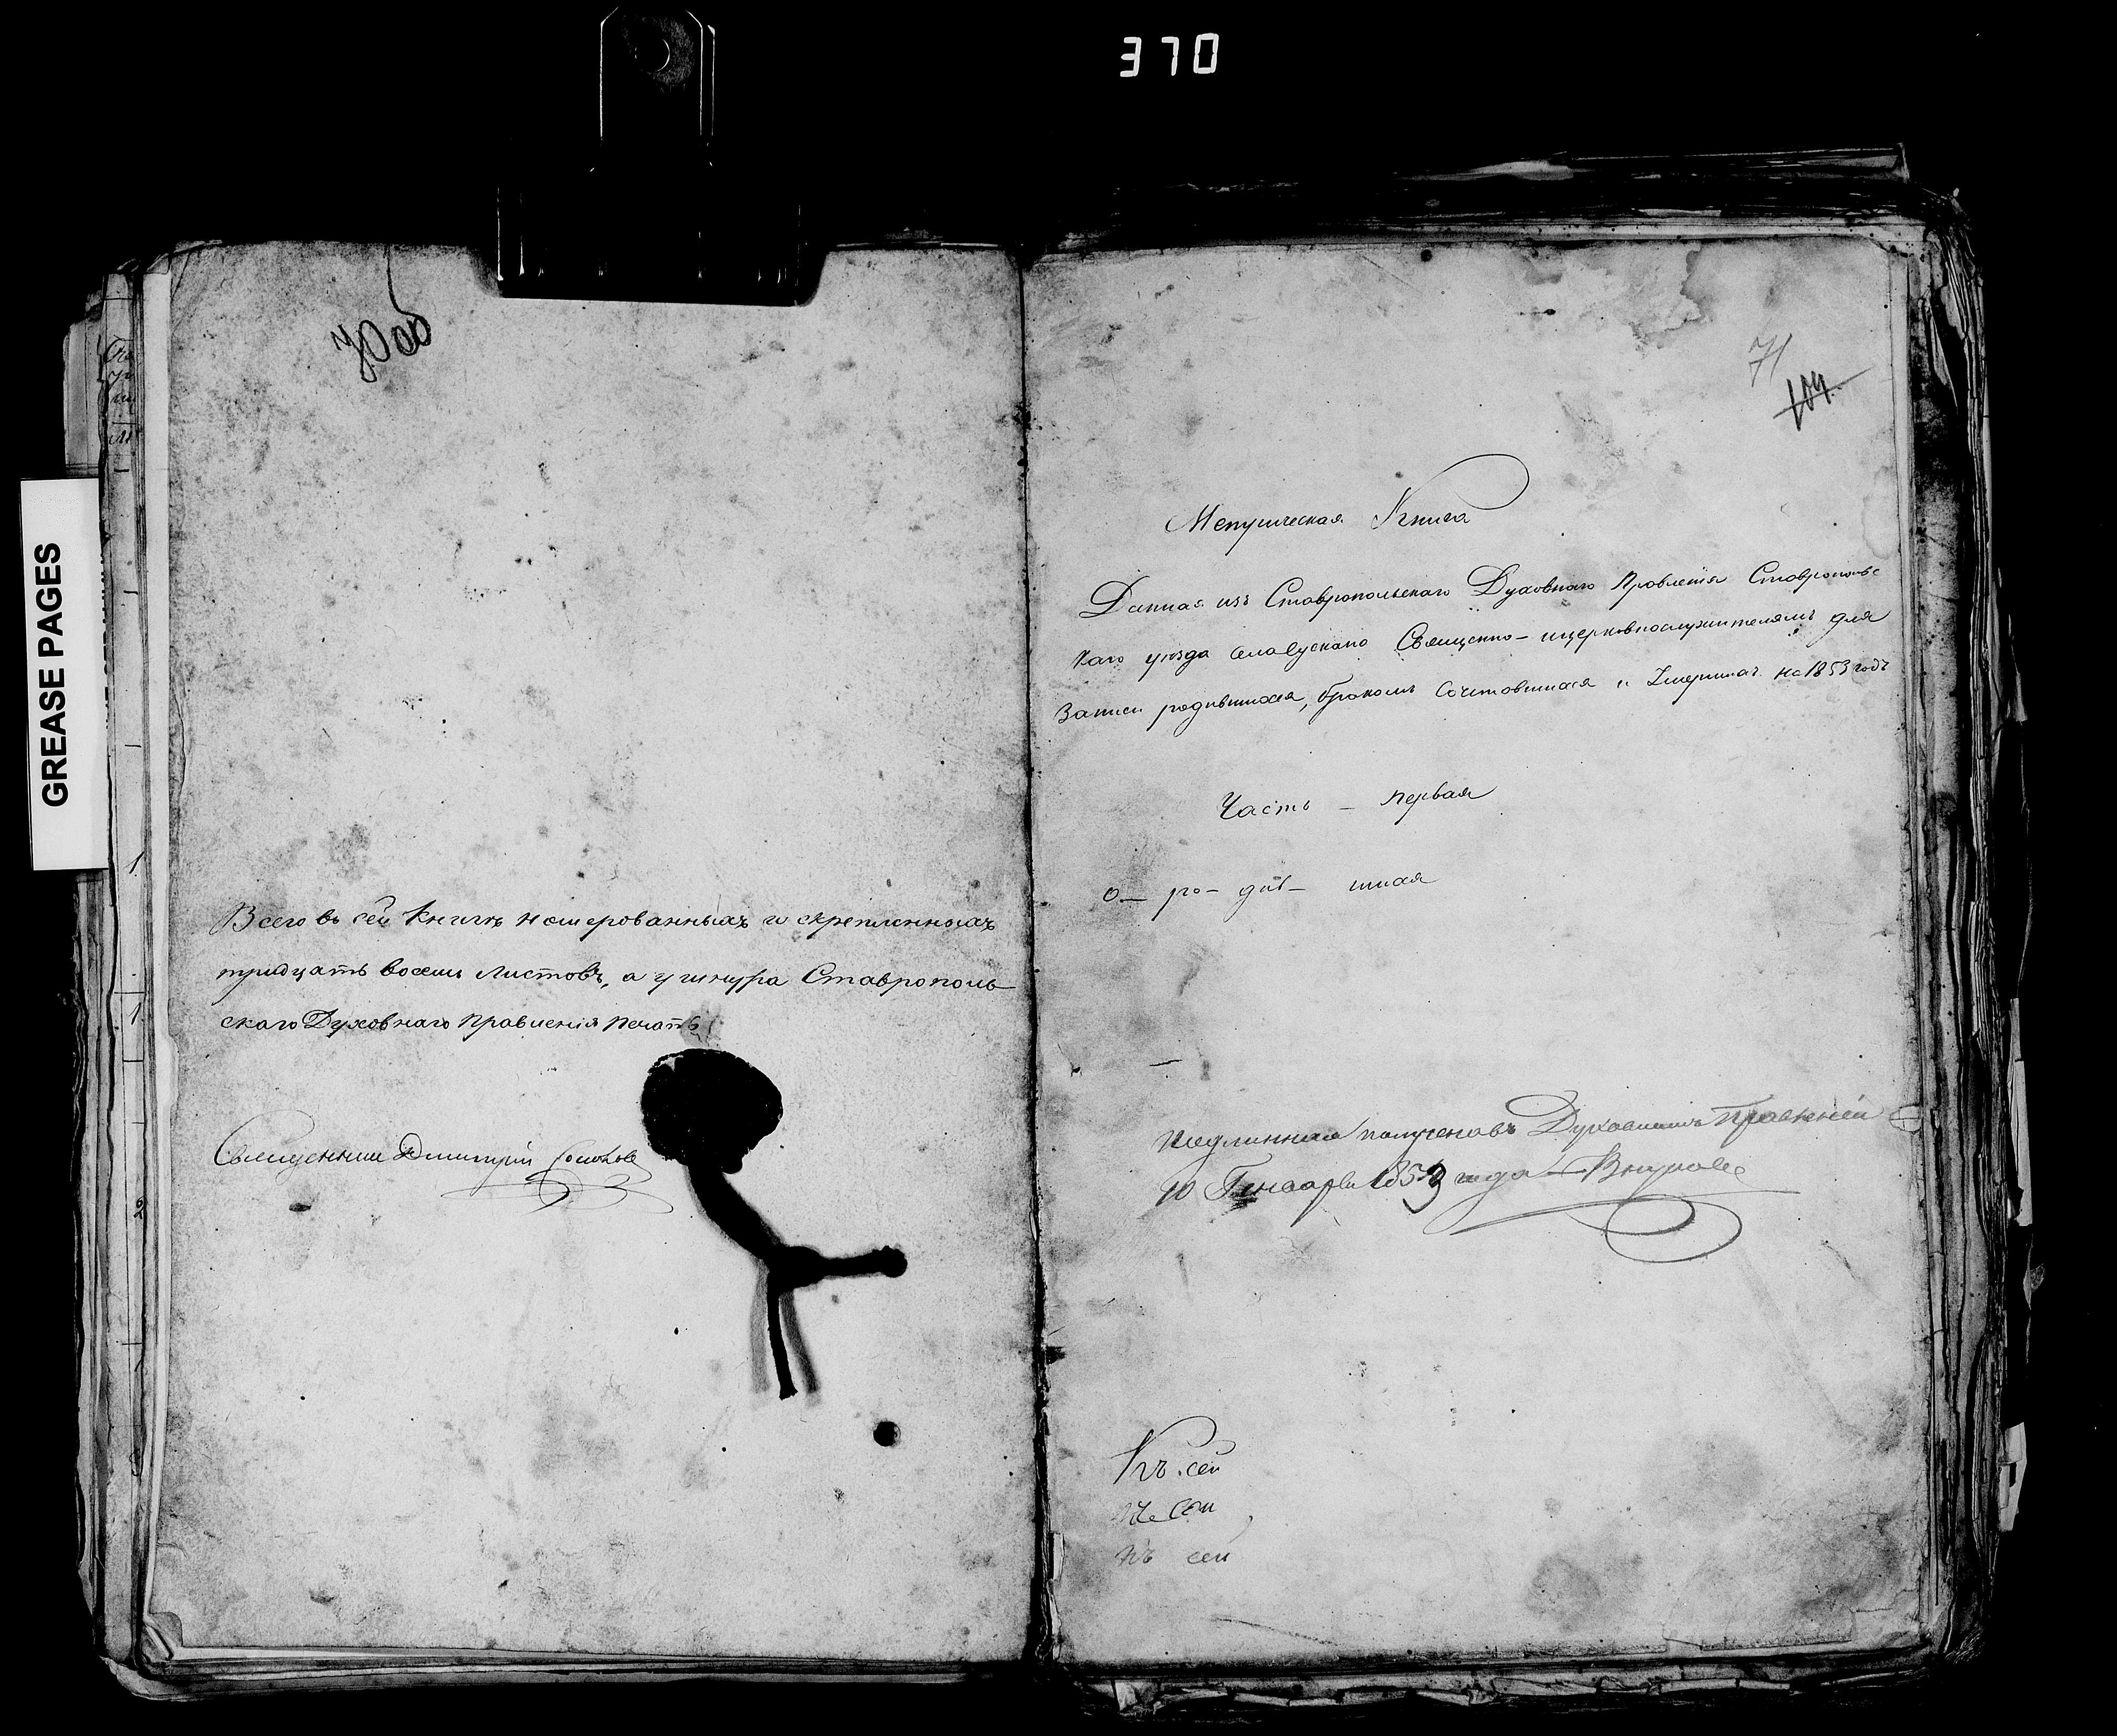 370
GREASE PAGES
70об
Всего въ сей Книгѣ номерованныхъ и скрепленныхъ
тридцать восемь листовъ, а у шнура Ставрополь
скаго Духовнаго Правленія печать
Священникъ Димитрій
71
104
Метрическая Книга
Данная изъ Ставропольскаго Духовнаго Правленія Ставропольс
каго уѣзда Священно-ицерковнослужителямъ для
Записи родившихся, бракомъ Сочетовшихся и Умершихъ на 1853 годъ
Часть – первая
о – ро – див – шихся
получена въ Духовномъ Правленіи
10 Генваря 1853 года
Къ сей
Къ сей
Къ сей